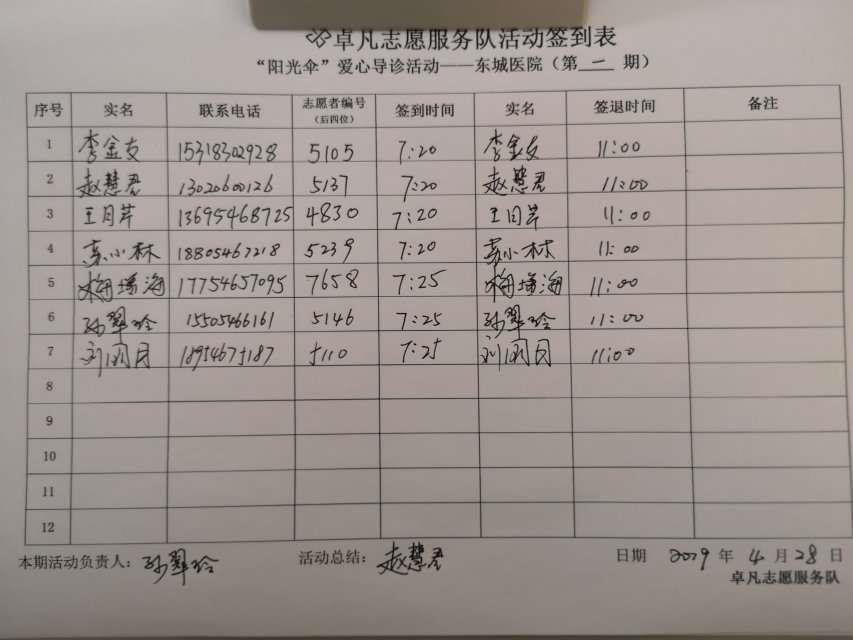 卓凡志愿服务队活动签到表
“阳光伞”爱心导诊活动——东城医院（第 一 期）
序号 实名 联系电话 志愿者编号（后四位） 签到时间 实名 签退时间 备注
1 李金友 15318302928 5105 7:20 李金友 11:00
2 赵慧君 13020600126 5137 7:20 赵慧君 11:00
3 王月芹 13695468725 4830 7:20 王月芹 11:00
4 苏小林 18805467218 5239 7:20 苏小林 11:00
5 梅 海 17754657095 7658 7:25 梅 海 11:00
6 孙翠玲 15505466161 5146 7:25 孙翠玲 11:00
7 刘 18954675187 5110 7:25 刘 11:00
8
9
10
11
12
本期活动负责人：孙翠玲 活动总结：赵慧君 日期 2019 年 4 月 28 日
卓凡志愿服务队